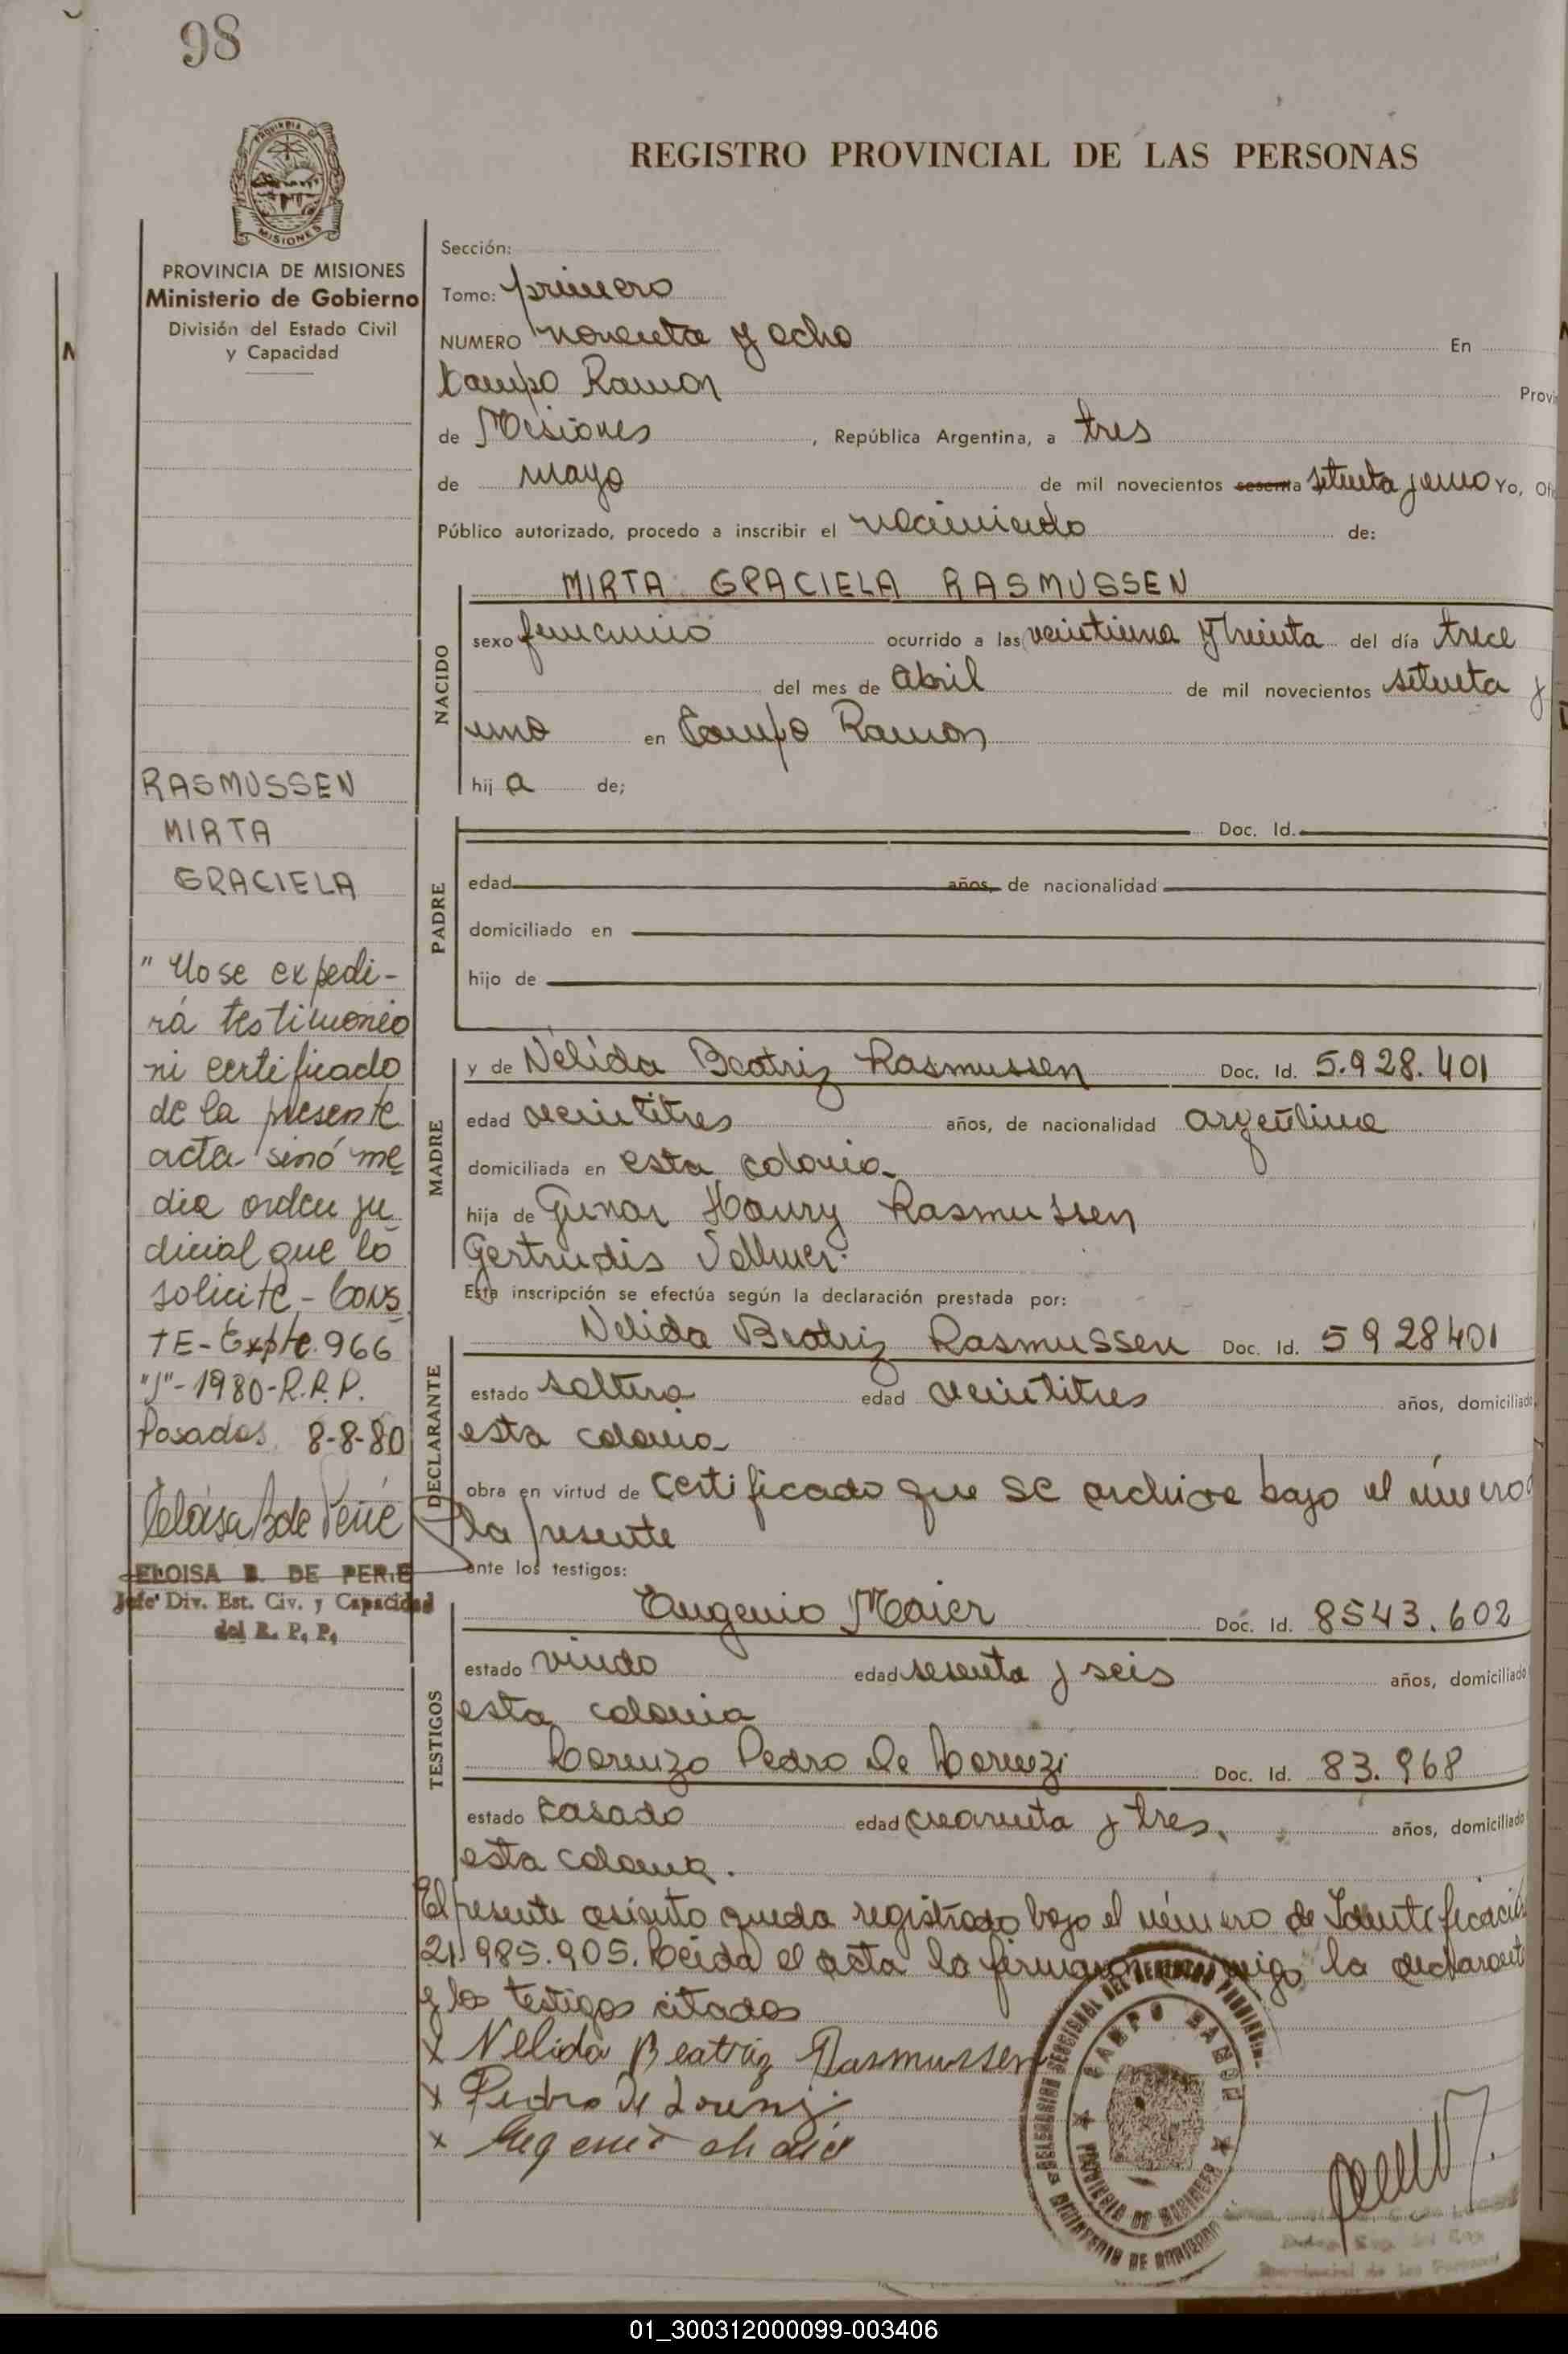 98
REGISTRO PROVINCIAL DE LAS PERSONAS
PROVINCIA DE
MISIONES
PROVINCIA DE MISIONES
Ministerio de Gobierno
División del Estado Civil
y Capacidad
Sección:
Tomo: primero
NUMERO noventa y ocho En
Campo Ramon Provi
de Misiones, República Argentina, a tres
de mayo de mil novecientos sesenta setenta y uno Yo, Ofi
Público autorizado, procedo a inscribir el nacimiento de:
NACIDO
MIRTA GRACIELA RASMUSSEN
sexo femenino ocurrido a las veintiuna y treinta del día trece
del mes de abril de mil novecientos setenta y
uno en Campo Ramon
hij a de;
PADRE
Doc. Id.
edad años, de nacionalidad
domiciliado en
hijo de
MADRE
y de Nélida Beatriz Rasmussen Doc. Id. 5.928.401
edad veintitres años, de nacionalidad argentina
domiciliada en esta colonia
hija de Gunar Haury Rasmussen
Gertrudis
Esta inscripción se efectúa según la declaración prestada por:
DECLARANTE
Nelida Beatriz Rasmussen Doc. Id. 5928401
estado soltera edad veintitres años, domiciliado
esta colonia
obra en virtud de certificado que se archiva bajo el número d
la presente
ante los testigos:
TESTIGOS
Eugenio Maier Doc. Id. 8543.602
estado viudo edad sesenta y seis años, domiciliado
esta colonia
Lorenzo Pedro De Lorenzi Doc. Id. 83.968
estado casado edad cuarenta y tres. años, domiciliado
esta colonia.
El presente asiento queda registrado bajo el número de Identificación
21.985.905. Leida el acta la firman conmigo la declarante
y los testigos citados
x Nelida Beatriz Rasmussen
x Pedro De Lorenzi
x Eugenio Maier
RASMUSSEN
MIRTA
GRACIELA
"No se expedi-
rá testimonio
ni certificado
de la presente
acta sinó me
dia orden ju
dicial que lo
solicite.- Cons
TE- Expte. 966
"J"-1980-R.P.P.
Posadas 8-8-80
Eloisa B de Perié
ELOISA B. DE PERIE
Jefe Div. Est. Civ. y Capacidad
del R. P. P.
CAMPO RAMON
PROVINCIA DE MISIONES
MINISTERIO DE GOBIERNO
Provincial de las Personas
01_300312000099-003406